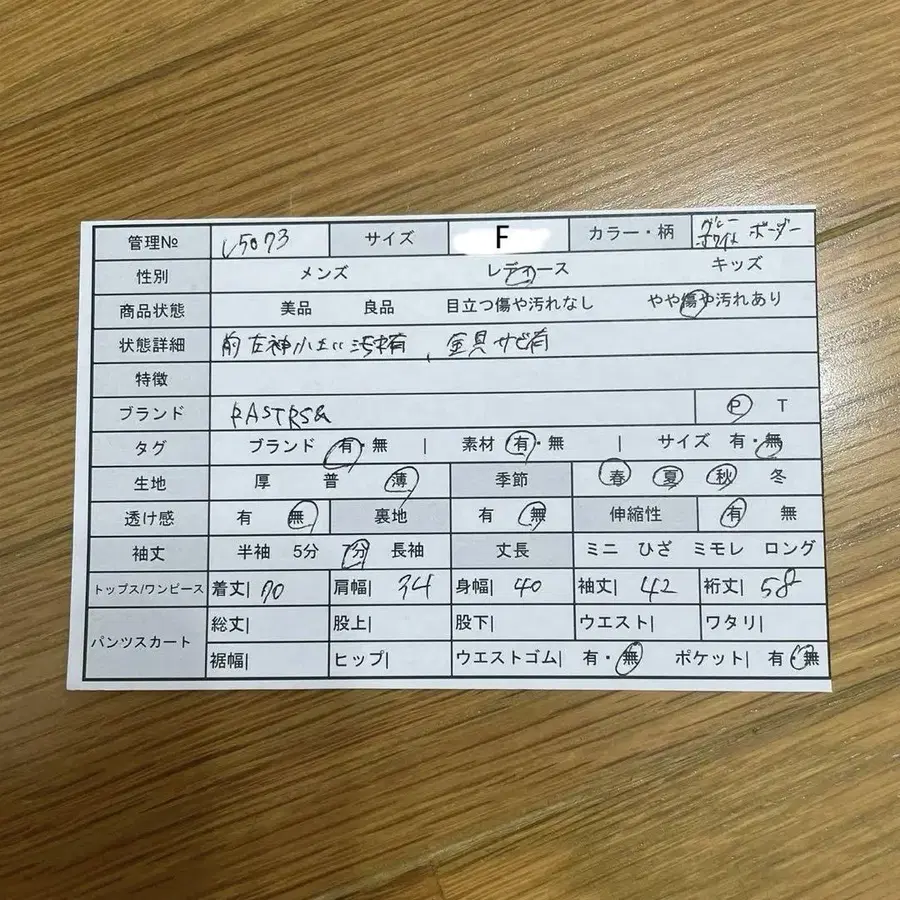 管理№ L5073 サイズ F カラー・柄 グレー ホワイト ボーダー
性別 メンズ レディース キッズ
商品状態 美品 良品 目立つ傷や汚れなし やや傷や汚れあり
状態詳細 前左 汚れ有、金具サビ有
特徴
ブランド P T
タグ ブランド 有・無 | 素材 有・無 | サイズ 有・無
生地 厚 普 薄 季節 春 夏 秋 冬
透け感 有 無 裏地 有 無 伸縮性 有 無
袖丈 半袖 5分 7分 長袖 丈長 ミニ ひざ ミモレ ロング
トップス/ワンピース 着丈| 70 肩幅| 34 身幅| 40 袖丈| 42 裄丈| 58
パンツスカート 総丈| 股上| 股下| ウエスト| ワタリ|
裾幅| ヒップ| ウエストゴム| 有・無 ポケット| 有・無